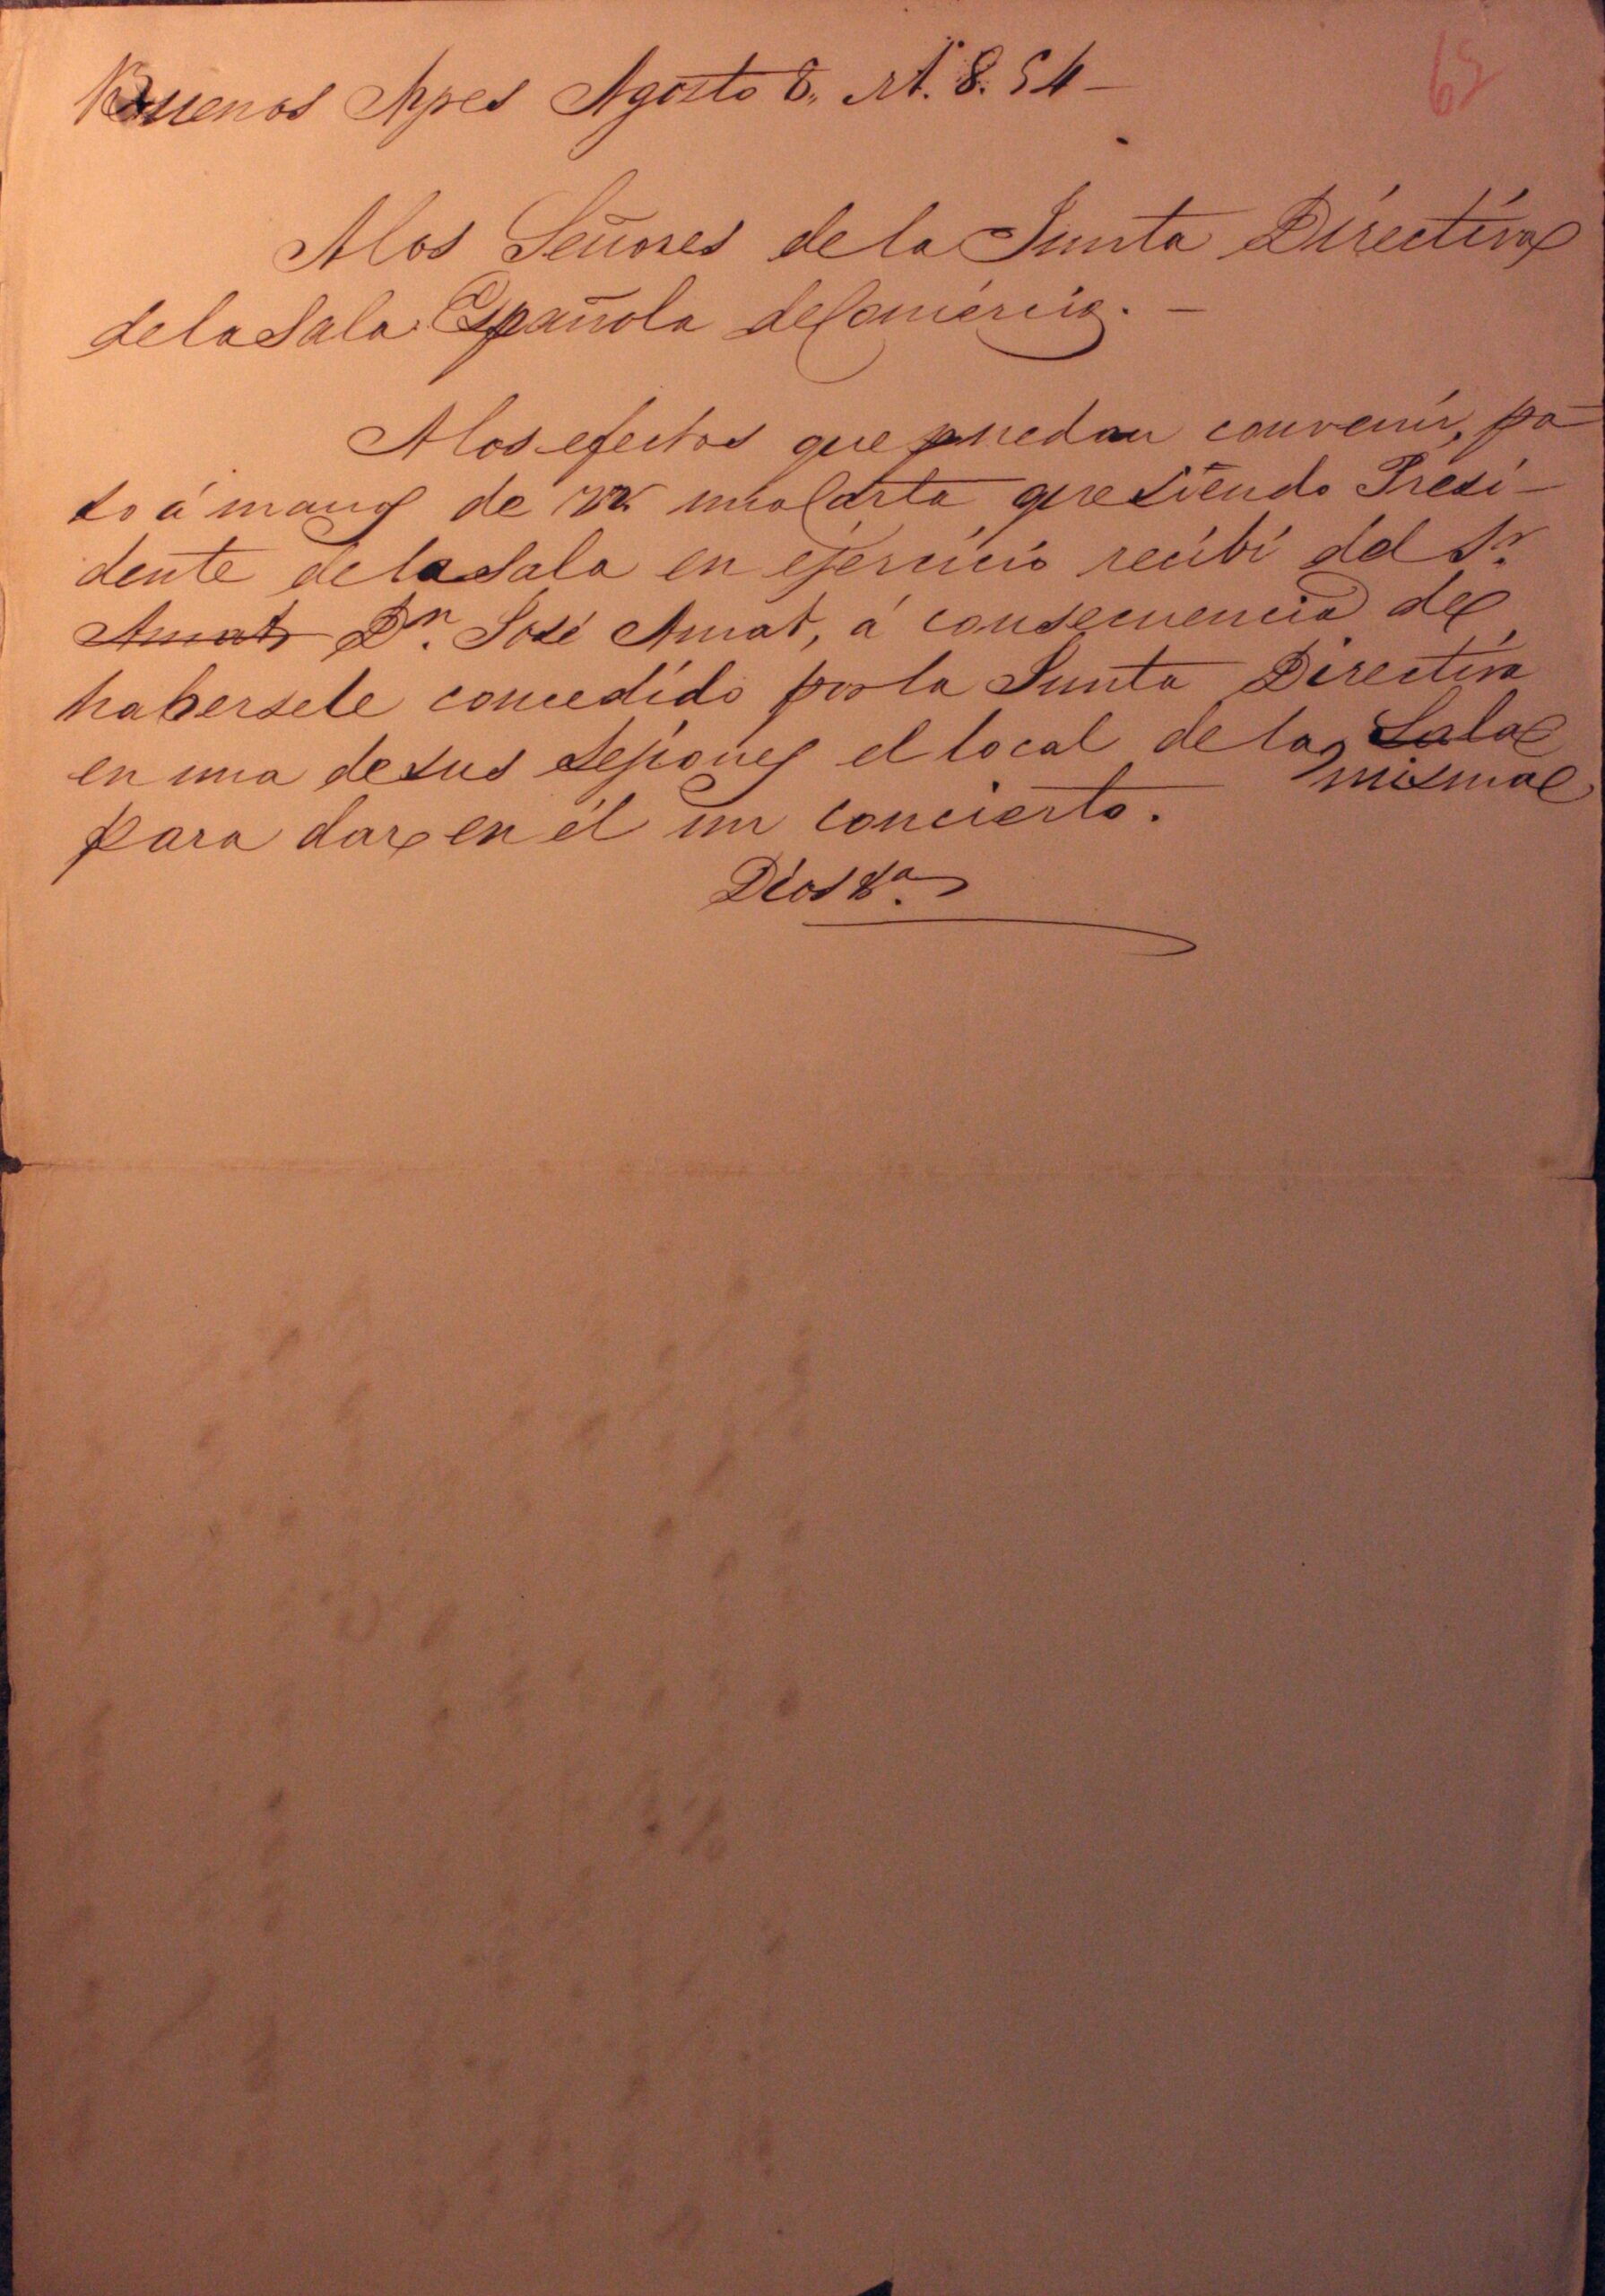 65
Buenos Ayres Agosto 8,, M. 8. 54 —
A los Señores de la Junta Directiva
de la Sala Española de Comercio. —
A los efectos que puedan convenir, pa-
so á manos de VV. una Carta que siendo Presi-
dente de la Sala en ejercicio recibi del Sr.
Amat Dn. José Amat, á consecuencia de
habersele concedido por la Junta Directiva
en una de sus sesiones el local de la Sala
misma
para dar en él un concierto.
Dios &a.